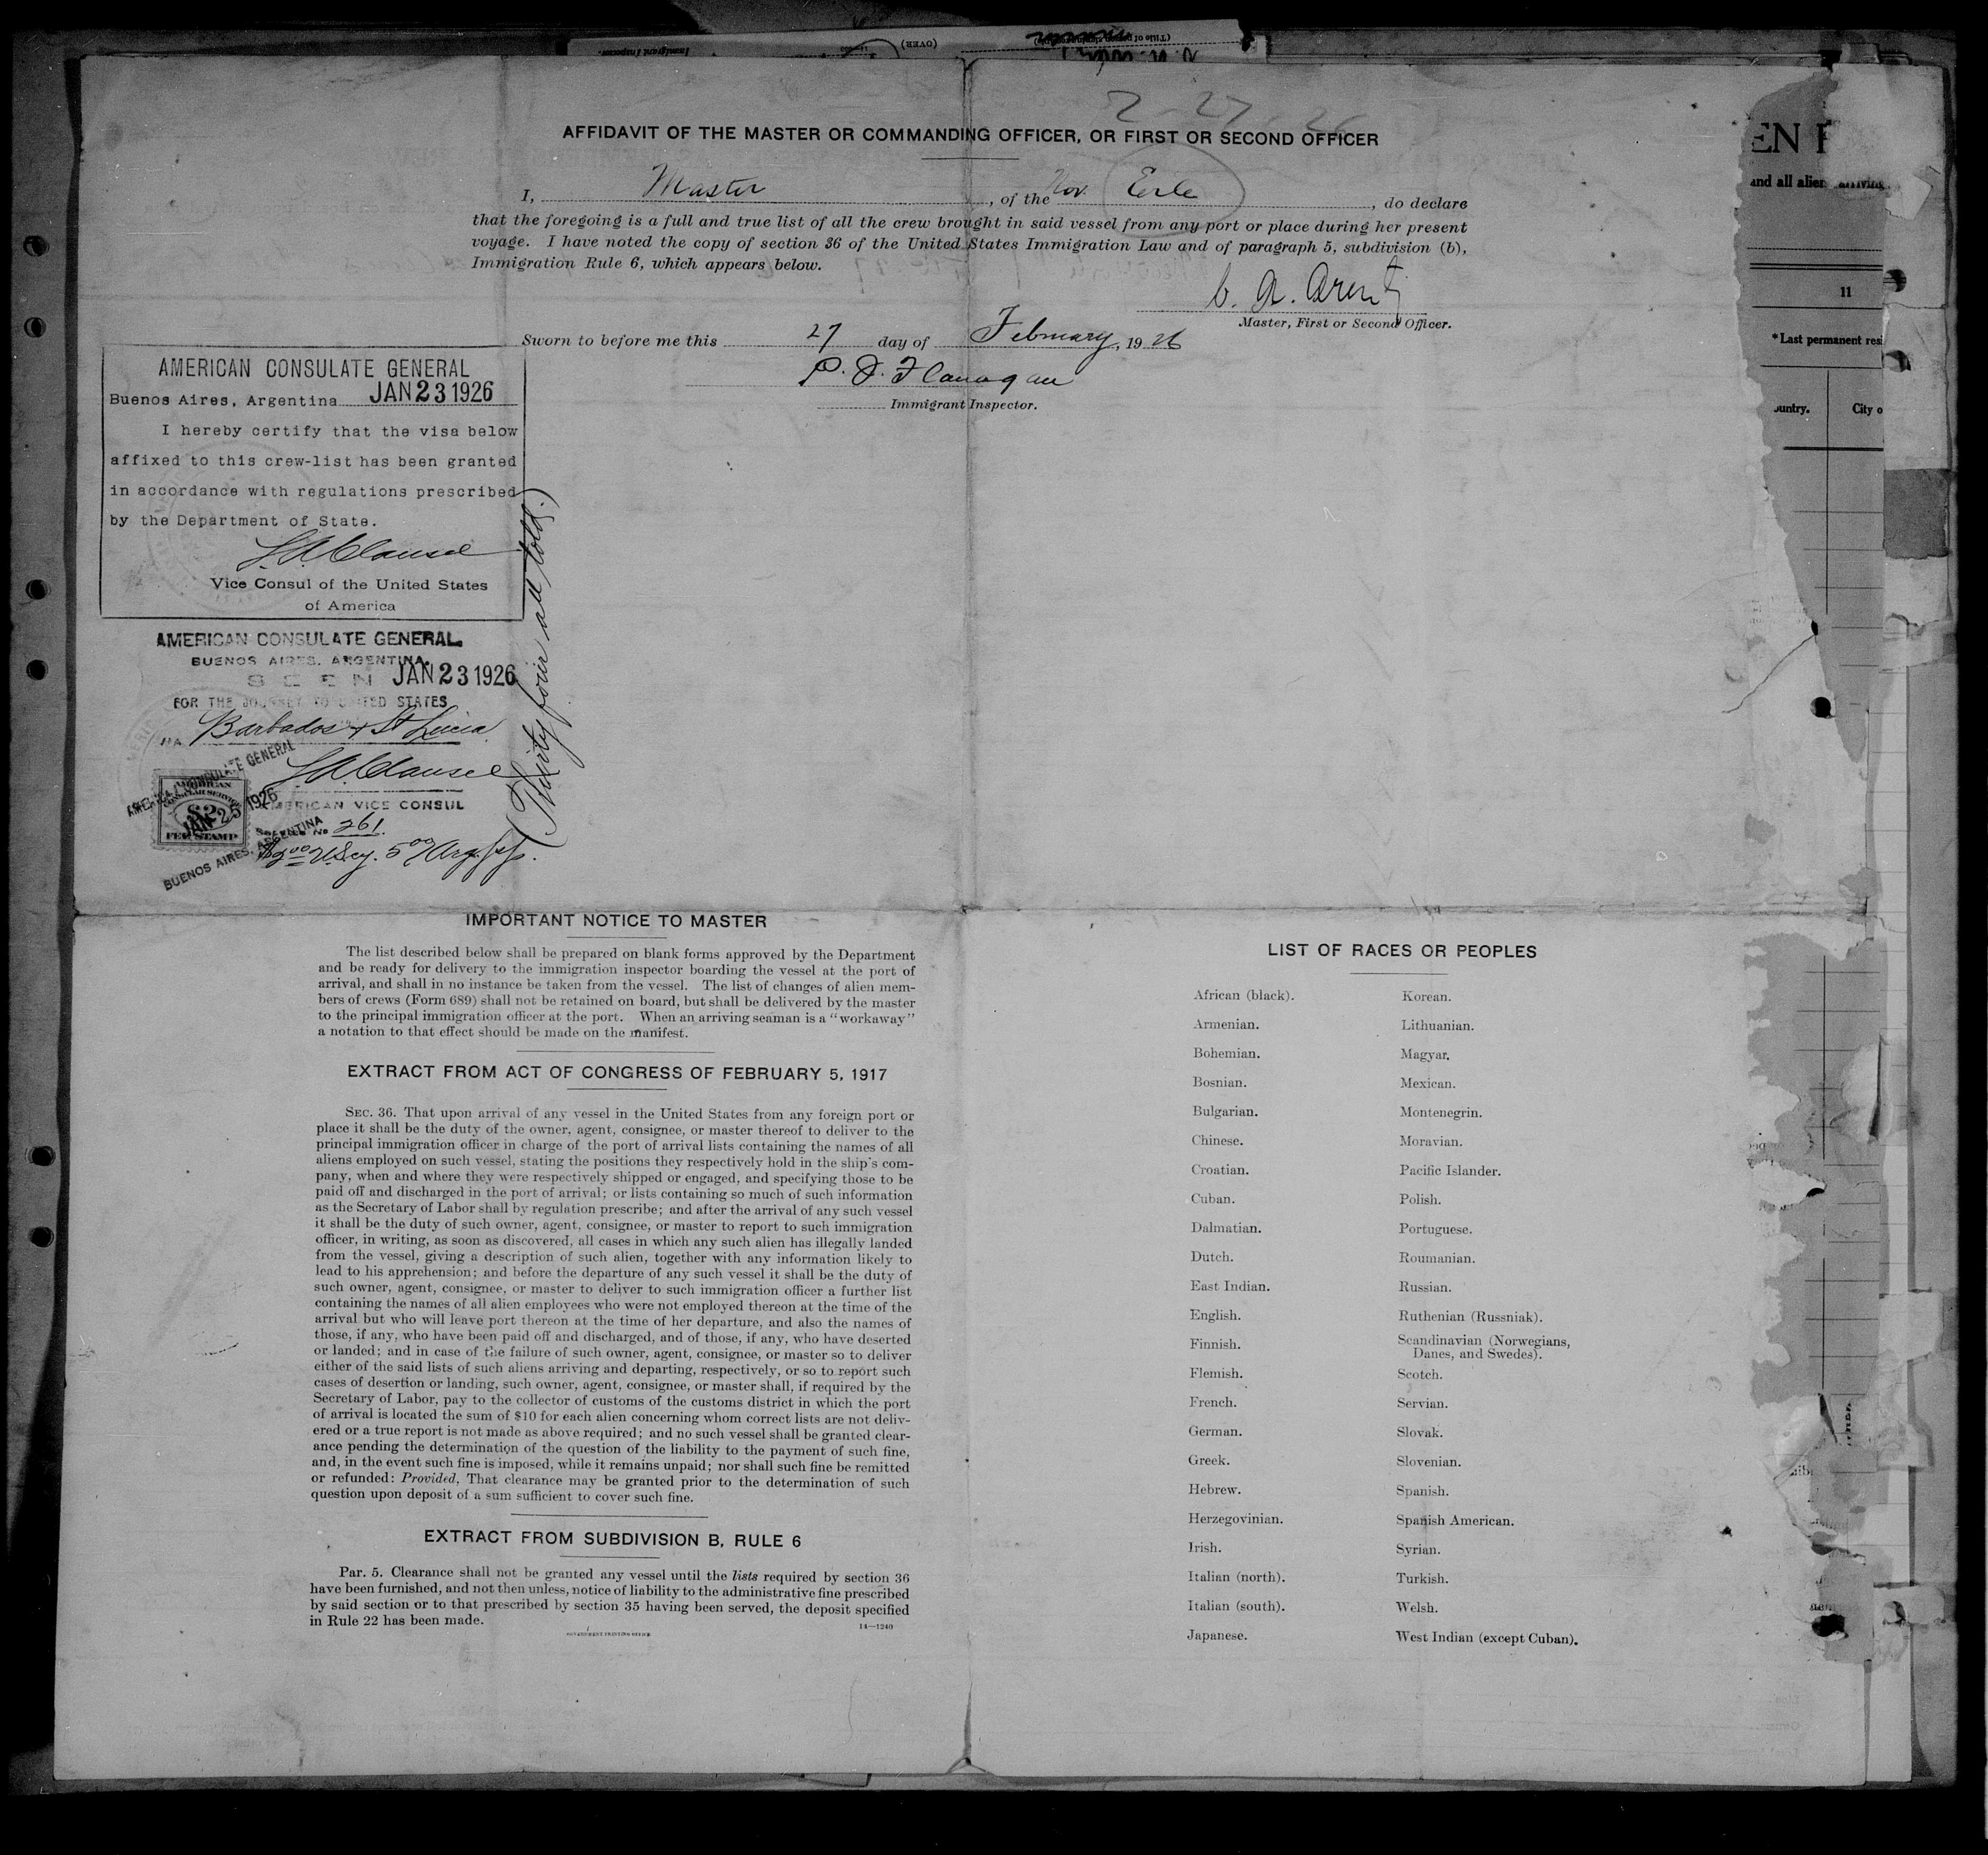 2-27-26
AFFIDAVIT OF THE MASTER OR COMMANDING OFFICER, OR FIRST OR SECOND OFFICER
I, Master, of the Nor. Erle, do declare
that the foregoing is a full and true list of all the crew brought in said vessel from any port or place during her present
voyage. I have noted the copy of section 36 of the United States Immigration Law and of paragraph 5, subdivision (b),
Immigration Rule 6, which appears below.
Master, First or Second Officer.
Sworn to before me this 27 day of February, 1926
P. J. Flanagan
Immigrant Inspector.
AMERICAN CONSULATE GENERAL
Buenos Aires, Argentina JAN 23 1926
I hereby certify that the visa below
affixed to this crew-list has been granted
in accordance with regulations prescribed
by the Department of State.
Vice Consul of the United States
of America
AMERICAN CONSULATE GENERAL
BUENOS AIRES, ARGENTINA.
SEEN JAN 23 1926
FOR THE JOURNEY TO UNITED STATES
VIA Barbados & St Lucia
AMERICAN VICE CONSUL
AMERICAN CONSULATE GENERAL
JAN 25 1926
BUENOS AIRES, ARGENTINA
AMERICAN
CONSULAR SERVICE
$2
FEE STAMP
No 261.
(Thirty four all told.)
IMPORTANT NOTICE TO MASTER
The list described below shall be prepared on blank forms approved by the Department
and be ready for delivery to the immigration inspector boarding the vessel at the port of
arrival, and shall in no instance be taken from the vessel. The list of changes of alien mem-
bers of crews (Form 689) shall not be retained on board, but shall be delivered by the master
to the principal immigration officer at the port. When an arriving seaman is a "workaway"
a notation to that effect should be made on the manifest.
EXTRACT FROM ACT OF CONGRESS OF FEBRUARY 5, 1917
SEC. 36. That upon arrival of any vessel in the United States from any foreign port or
place it shall be the duty of the owner, agent, consignee, or master thereof to deliver to the
principal immigration officer in charge of the port of arrival lists containing the names of all
aliens employed on such vessel, stating the positions they respectively hold in the ship's com-
pany, when and where they were respectively shipped or engaged, and specifying those to be
paid off and discharged in the port of arrival; or lists containing so much of such information
as the Secretary of Labor shall by regulation prescribe; and after the arrival of any such vessel
it shall be the duty of such owner, agent, consignee, or master to report to such immigration
officer, in writing, as soon as discovered, all cases in which any such alien has illegally landed
from the vessel, giving a description of such alien, together with any information likely to
lead to his apprehension; and before the departure of any such vessel it shall be the duty of
such owner, agent, consignee, or master to deliver to such immigration officer a further list
containing the names of all alien employees who were not employed thereon at the time of the
arrival but who will leave port thereon at the time of her departure, and also the names of
those, if any, who have been paid off and discharged, and of those, if any, who have deserted
or landed; and in case of the failure of such owner, agent, consignee, or master so to deliver
either of the said lists of such aliens arriving and departing, respectively, or so to report such
cases of desertion or landing, such owner, agent, consignee, or master shall, if required by the
Secretary of Labor, pay to the collector of customs of the customs district in which the port
of arrival is located the sum of $10 for each alien concerning whom correct lists are not deliv-
ered or a true report is not made as above required; and no such vessel shall be granted clear-
ance pending the determination of the question of the liability to the payment of such fine,
and, in the event such fine is imposed, while it remains unpaid; nor shall such fine be remitted
or refunded: Provided, That clearance may be granted prior to the determination of such
question upon deposit of a sum sufficient to cover such fine.
EXTRACT FROM SUBDIVISION B, RULE 6
Par. 5. Clearance shall not be granted any vessel until the lists required by section 36
have been furnished, and not then unless, notice of liability to the administrative fine prescribed
by said section or to that prescribed by section 35 having been served, the deposit specified
in Rule 22 has been made.
14—1240
GOVERNMENT PRINTING OFFICE
LIST OF RACES OR PEOPLES
African (black).
Armenian.
Bohemian.
Bosnian.
Bulgarian.
Chinese.
Croatian.
Cuban.
Dalmatian.
Dutch.
East Indian.
English.
Finnish.
Flemish.
French.
German.
Greek.
Hebrew.
Herzegovinian.
Irish.
Italian (north).
Italian (south).
Japanese.
Korean.
Lithuanian.
Magyar.
Mexican.
Montenegrin.
Moravian.
Pacific Islander.
Polish.
Portuguese.
Roumanian.
Russian.
Ruthenian (Russniak).
Scandinavian (Norwegians,
Danes, and Swedes).
Scotch.
Servian.
Slovak.
Slovenian.
Spanish.
Spanish American.
Syrian.
Turkish.
Welsh.
West Indian (except Cuban).
EN
and all alien arriving
11
*Last permanent resi
ountry.
City o
(OVER)
Immigrant Inspector.